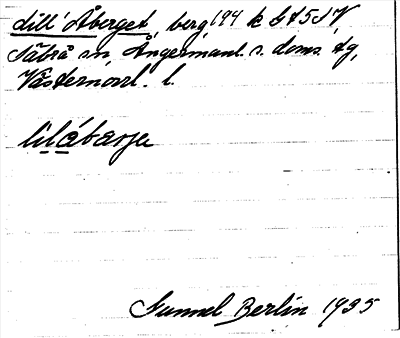 Lill' Åberget, berg 194 k bl 5d V
Säbrå sn, Ångermanl. s. doms. tg,
Västernorrl. l.
lilåbærje
Gunnel Berlin 1935